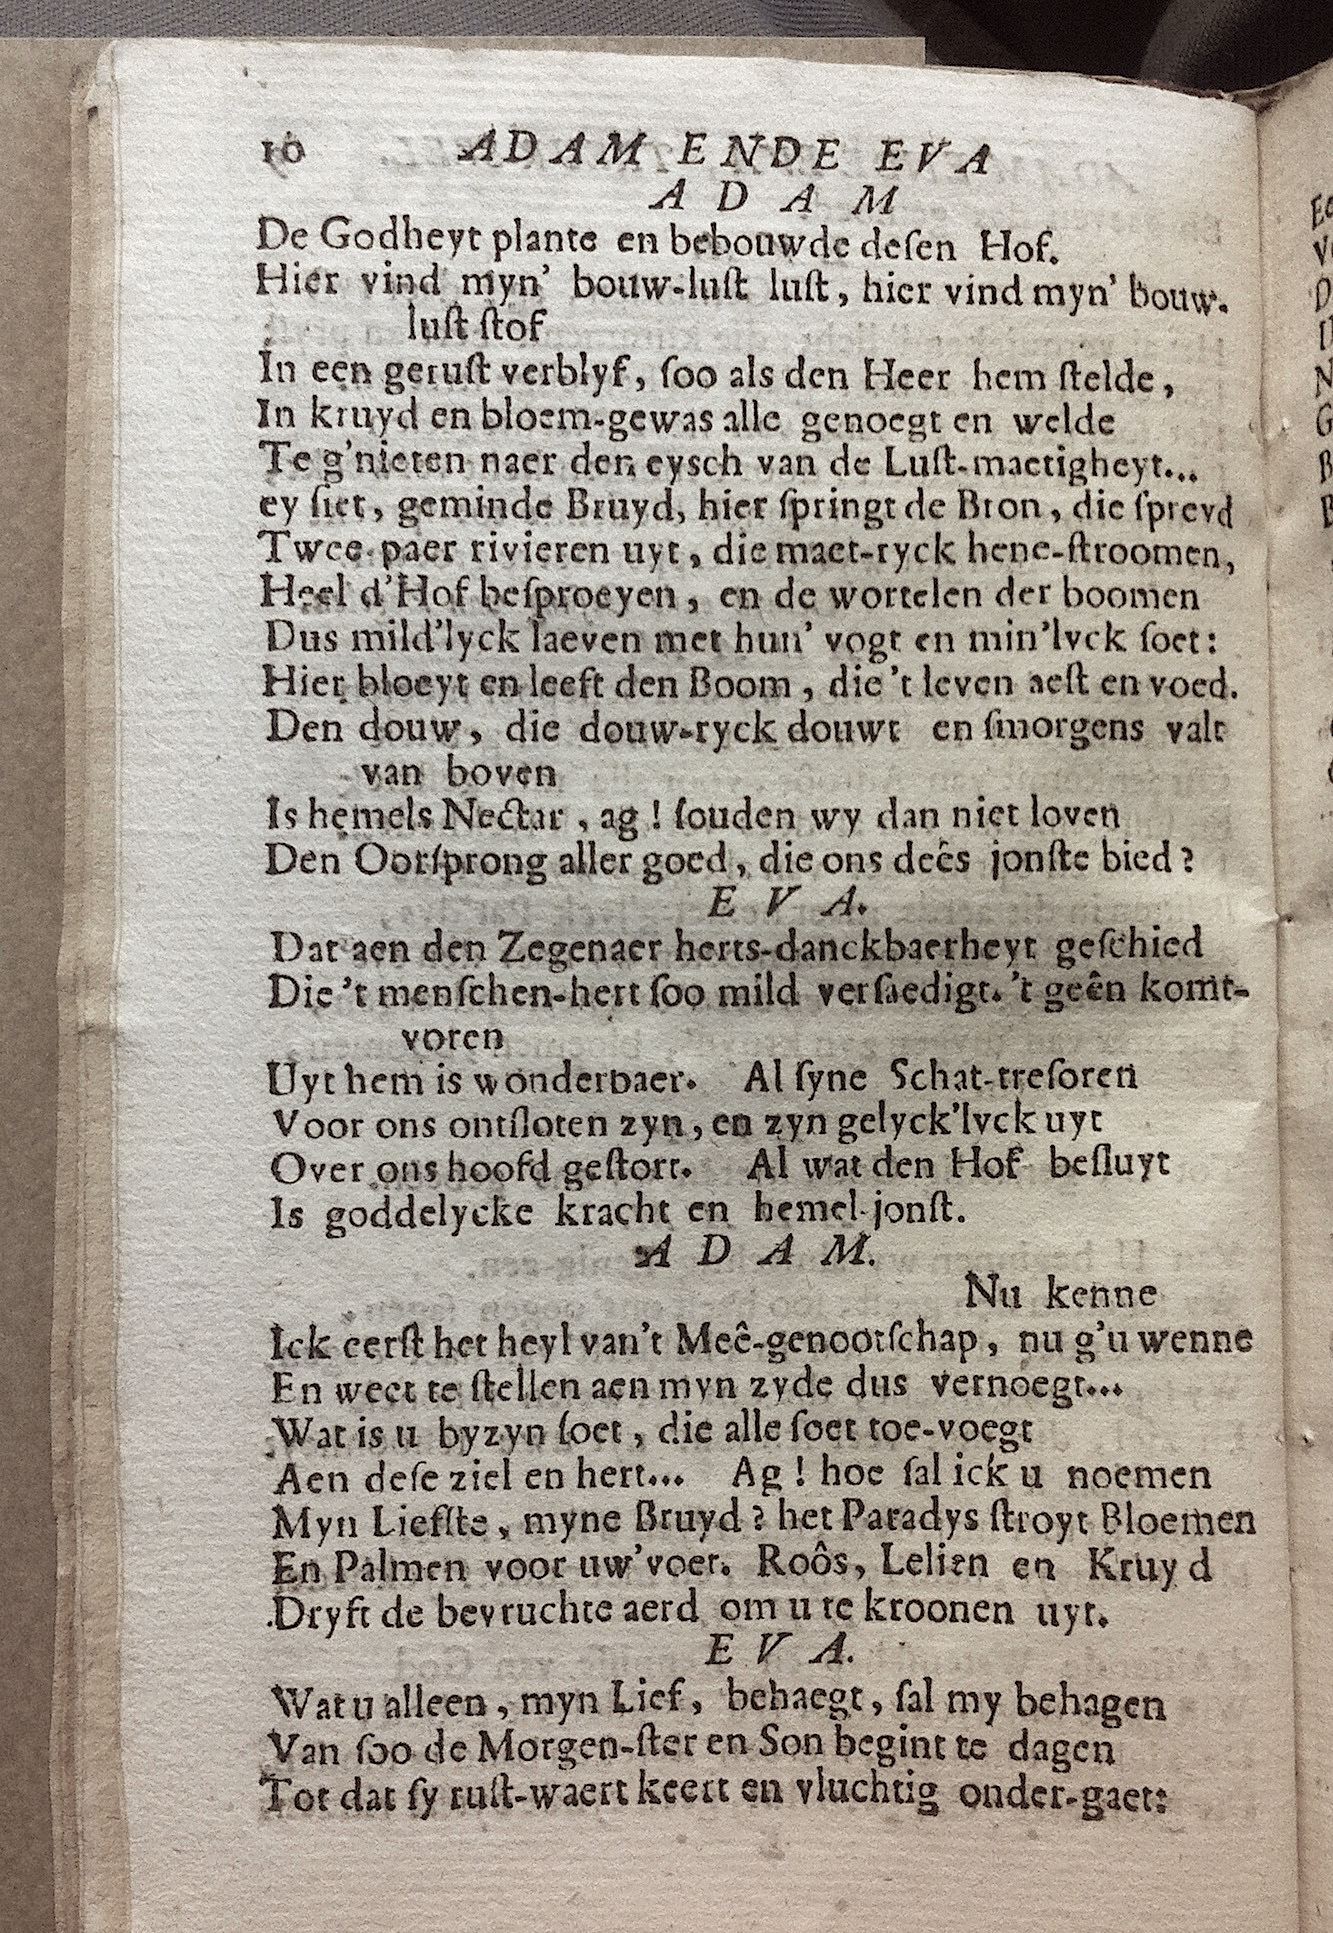 10 ADAM ENDE EVA
ADAM
De Godheyt plante en bebouwde deſen Hof.
Hier vind myn' bouw-luſt luſt, hier vind myn' bouw-
luſt ſtof
In een geruſt verblyf, ſoo als den Heer hem ſtelde,
In kruyd en bloem-gewas alle genoegt en welde
Te g'nieten naer den eysch van de Luſt-maetigheyt...
ey ſiet, geminde Bruyd, hier ſpringt de Bron, die ſpreyd
Twee paer rivieren uyt, die maet-ryck hene-ſtroomen,
Heel d'Hof beſproeyen, en de wortelen der boomen
Dus mild'lyck laeven met hun' vogt en min'lyck ſoet:
Hier bloeyt en leeft den Boom, die 't leven aeſt en voed.
Den douw, die douw-ryck douwt en ſmorgens valt
van boven
Is hemels Nectar, ag! ſouden wy dan niet loven
Den Oorſprong aller goed, die ons deês jonſte bied?
EVA.
Dat aen den Zegenaer herts-danckbaerheyt geſchied
Die 't menſchen-hert ſoo mild verſaedigt. 't geên komt-
voren
Uyt hem is wonderbaer. Al ſyne Schat-treſoren
Voor ons ontſloten zyn, en zyn gelyck'lyck uyt
Over ons hoofd geſtort. Al wat den Hof beſluyt
Is goddelycke kracht en hemel-jonſt.
ADAM.
Nu kenne
Ick eerſt het heyl van't Meê-genootſchap, nu g'u wenne
En weet te ſtellen aen myn zyde dus vernoegt...
Wat is u byzyn ſoet, die alle ſoet toe-voegt
Aen deſe ziel en hert... Ag! hoe ſal ick u noemen
Myn Liefſte, myne Bruyd? het Paradys ſtroyt Bloemen
En Palmen voor uw'voet. Roôs, Lelien en Kruyd
Dryft de bevruchte aerd om u te kroonen uyt.
EVA.
Wat u alleen, myn Lief, behaegt, ſal my behagen
Van ſoo de Morgen-ſter en Son begint te dagen
Tot dat ſy ruſt-waert keert en vluchtig onder-gaet: